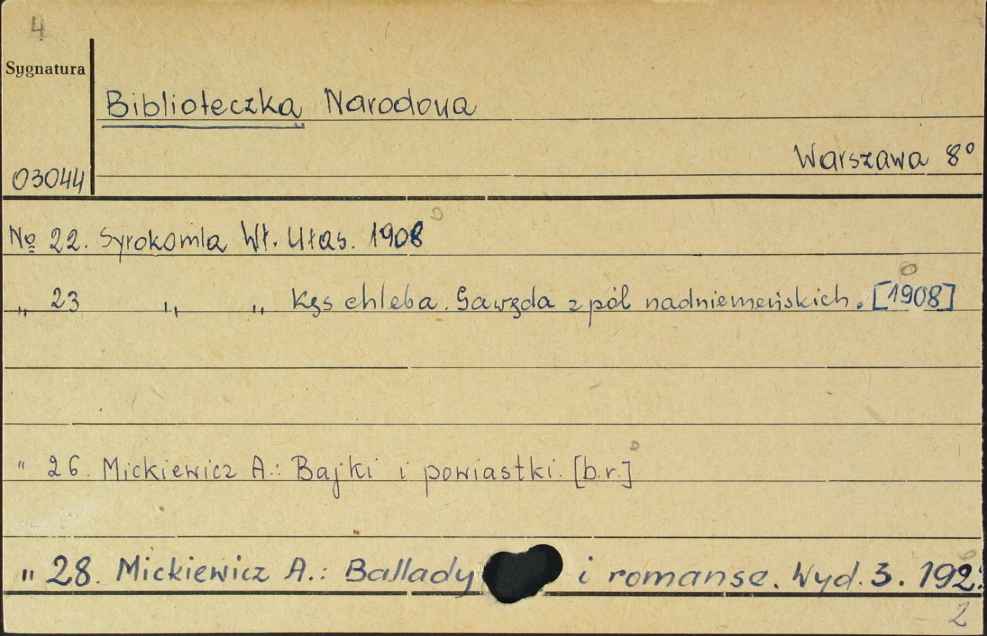 4
Sygnatura
Biblioteczka Narodowa
Warszawa 8°
03044
№ 22. Syrokomla Wł. Ułas. 1908
„ 23 „ „ Kęs chleba. Gawęda z pól nadniemeńskich. [1908]
" 26. Mickiewicz A.: Bajki i powiastki. [b.r.]
" 28. Mickiewicz A.: Ballady i romanse. Wyd. 3. 192
2